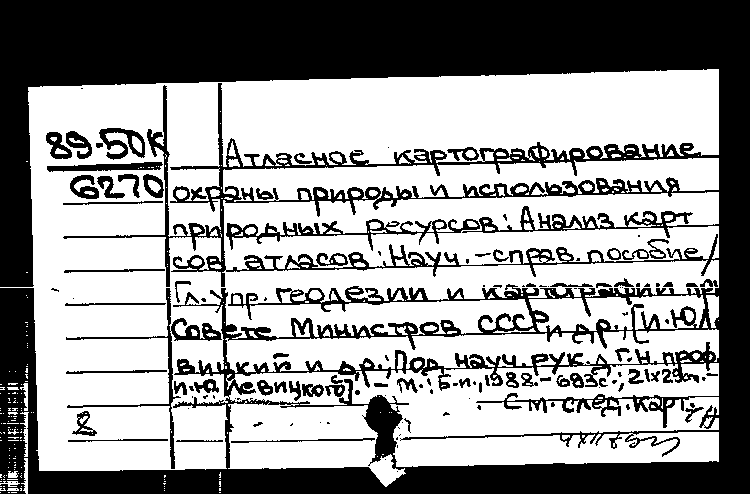 89-50К
6270
Атласное картографирование
охраны природы и использования
природных ресурсов: Анализ карт
сов. атласов: Науч.-справ. пособие/
Гл. упр. геодезии и картографии при
Совете Министров СССР и др.; [И.Ю.Ле
вицкий и др.; Под науч. рук. д.г.н. проф.
И.Ю. Левицкого]. - М.: Б.и., 1988. - 693с.; 21х29см. -
См. след. карт.
2